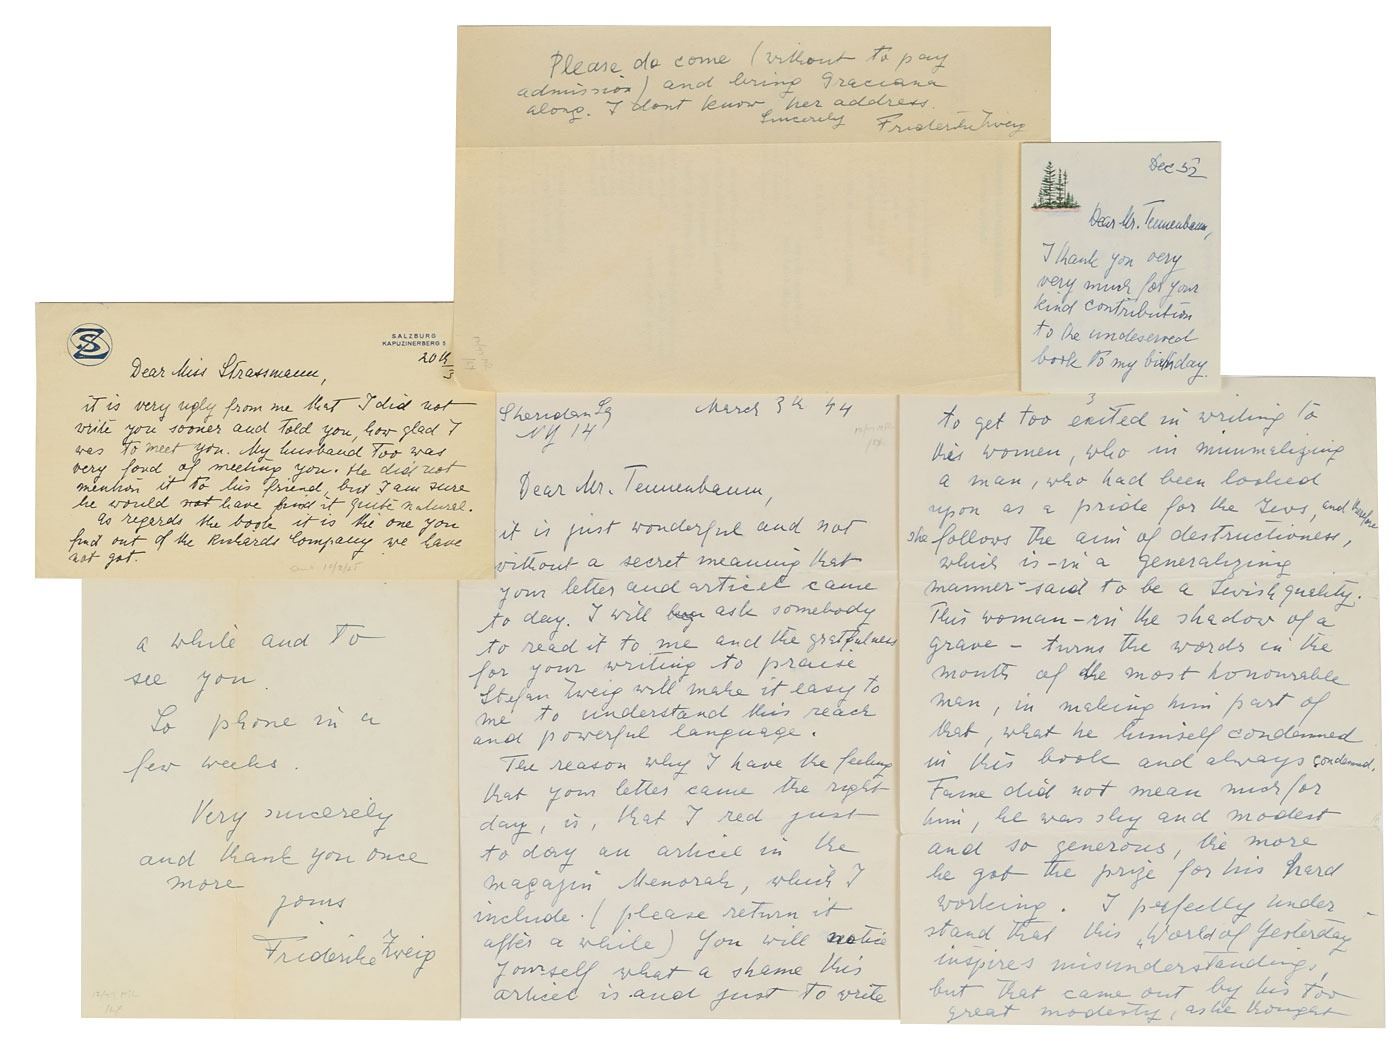 Please do come (without to pay
admission) and bring Graciana
along. I dont know her address.
Sincerely Friderike Zweig
Dec 52
Dear Mr. Tennenbaum,
I thank you very
very much for your
kind contribution
to the undeserved
book to my birthday.
SZ
SALZBURG
KAPUZINERBERG 5
20th
Dear Miss Strassmann,
it is very ugly from me that I did not
write you sooner and told you, how glad I
was to meet you. My husband too was
very fond of meeting you. He did not
mention it to his friend, but I am sure
he would not have find it quite natural.
As regards the book it is the one you
find out of the Richards Company we have
not got.
a while and to
see you.
So phone in a
few weeks.
Very sincerely
and thank you once
more
yours
Friderike Zweig
Sheridan Sq
NY 14
March 3th 44
Dear Mr. Tennenbaum,
it is just wonderful and not
without a secret meaning that
your letter and articel came
to day. I will beg ask somebody
to read it to me and the gratefulness
for your writing to praise
Stefan Zweig will make it easy to
me to understand this reach
and powerful language.
The reason why I have the feeling
that your letter came the right
day, is, that I red just
to day an articel in the
magazin Menorah, which I
include. (please return it
after a while) You will notice
yourself what a shame this
articel is and just to write
3
to get too exited in writing to
this women, who in minmalizing
a man, who had been looked
upon as a pride for the Jews, and therefore
she follows the aim of destructioness,
which is - in a generalizing
manner - said to be a Jewish quality.
This woman - in the shadow of a
grave - turns the words in the
mouth of the most honourable
man, in making him part of
that, what he himself condemned
in this book and always condemned.
Fame did not mean much for
him, he was shy and modest
and so generous, the more
he got the prize for his hard
working. I perfectly under
stand that this „World of Yesterday"
inspires misunderstandings,
but that came out by his too
great modesty, as he thought